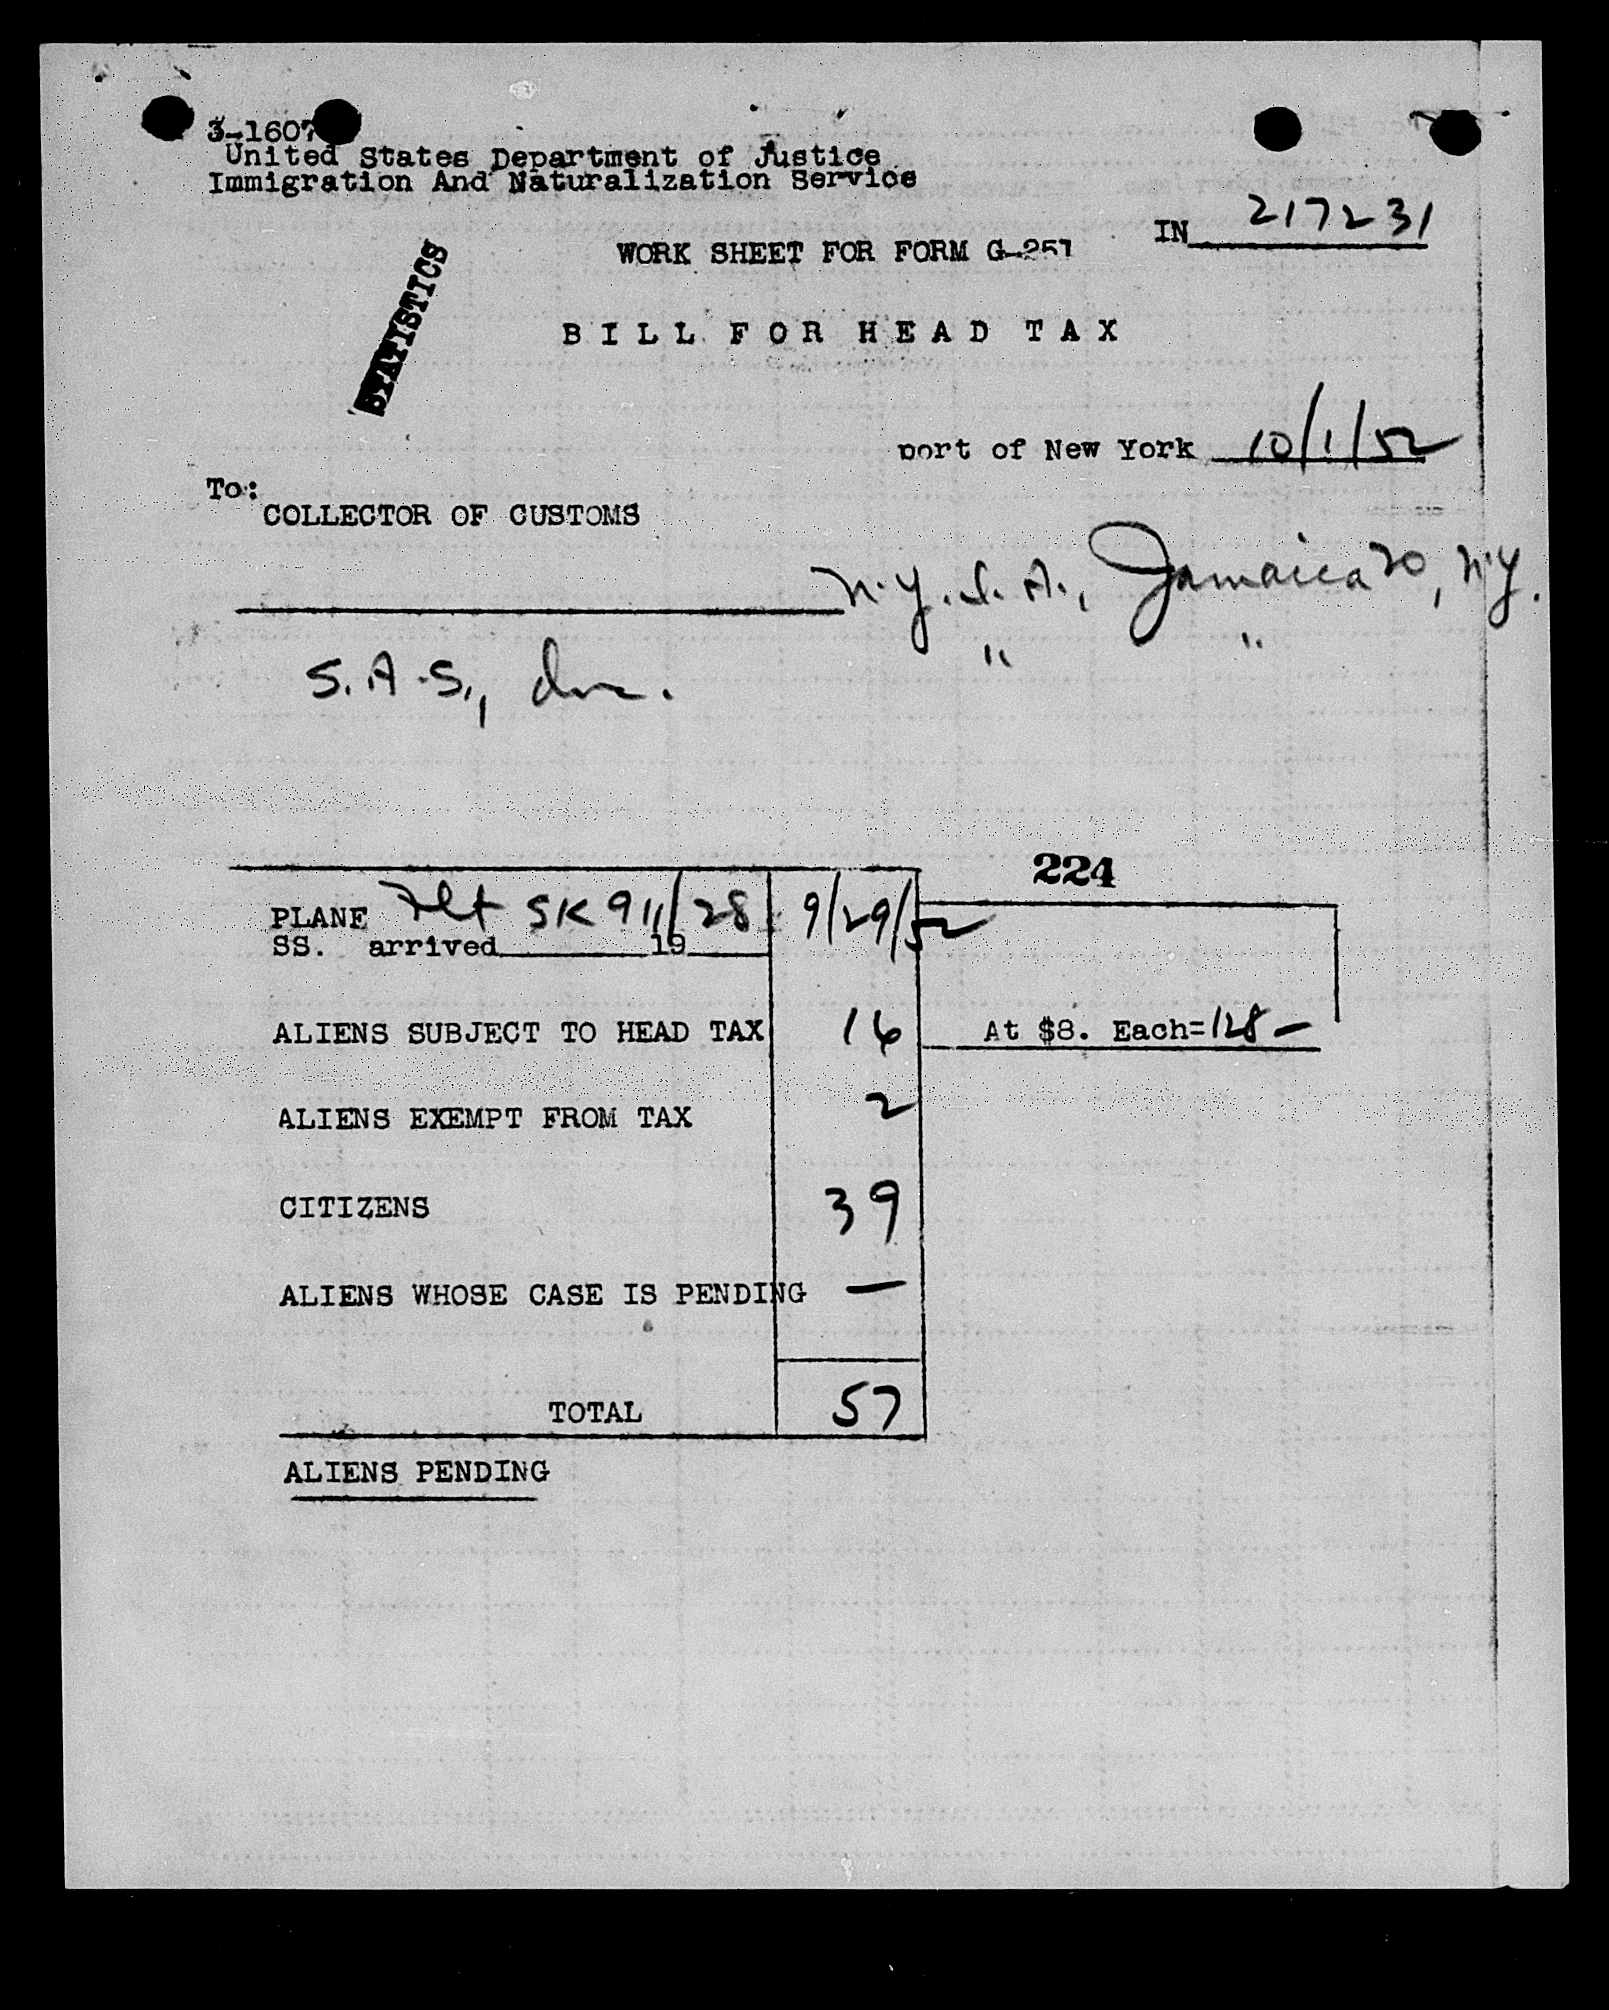 3-1607
United States Department of Justice
Immigration And Naturalization Service
IN 217231
WORK SHEET FOR FORM G-251
STATISTICS
BILL FOR HEAD TAX
port of New York 10/1/52
To:
COLLECTOR OF CUSTOMS
N.Y.I.A., Jamaica 20, N.Y.
S.A.S., Inc. " "
224
PLANE Flt SK 911/28 9/29/52
SS. arrived 19
ALIENS SUBJECT TO HEAD TAX 16 At $8. Each=128-
ALIENS EXEMPT FROM TAX 2
CITIZENS 39
ALIENS WHOSE CASE IS PENDING —
TOTAL 57
ALIENS PENDING